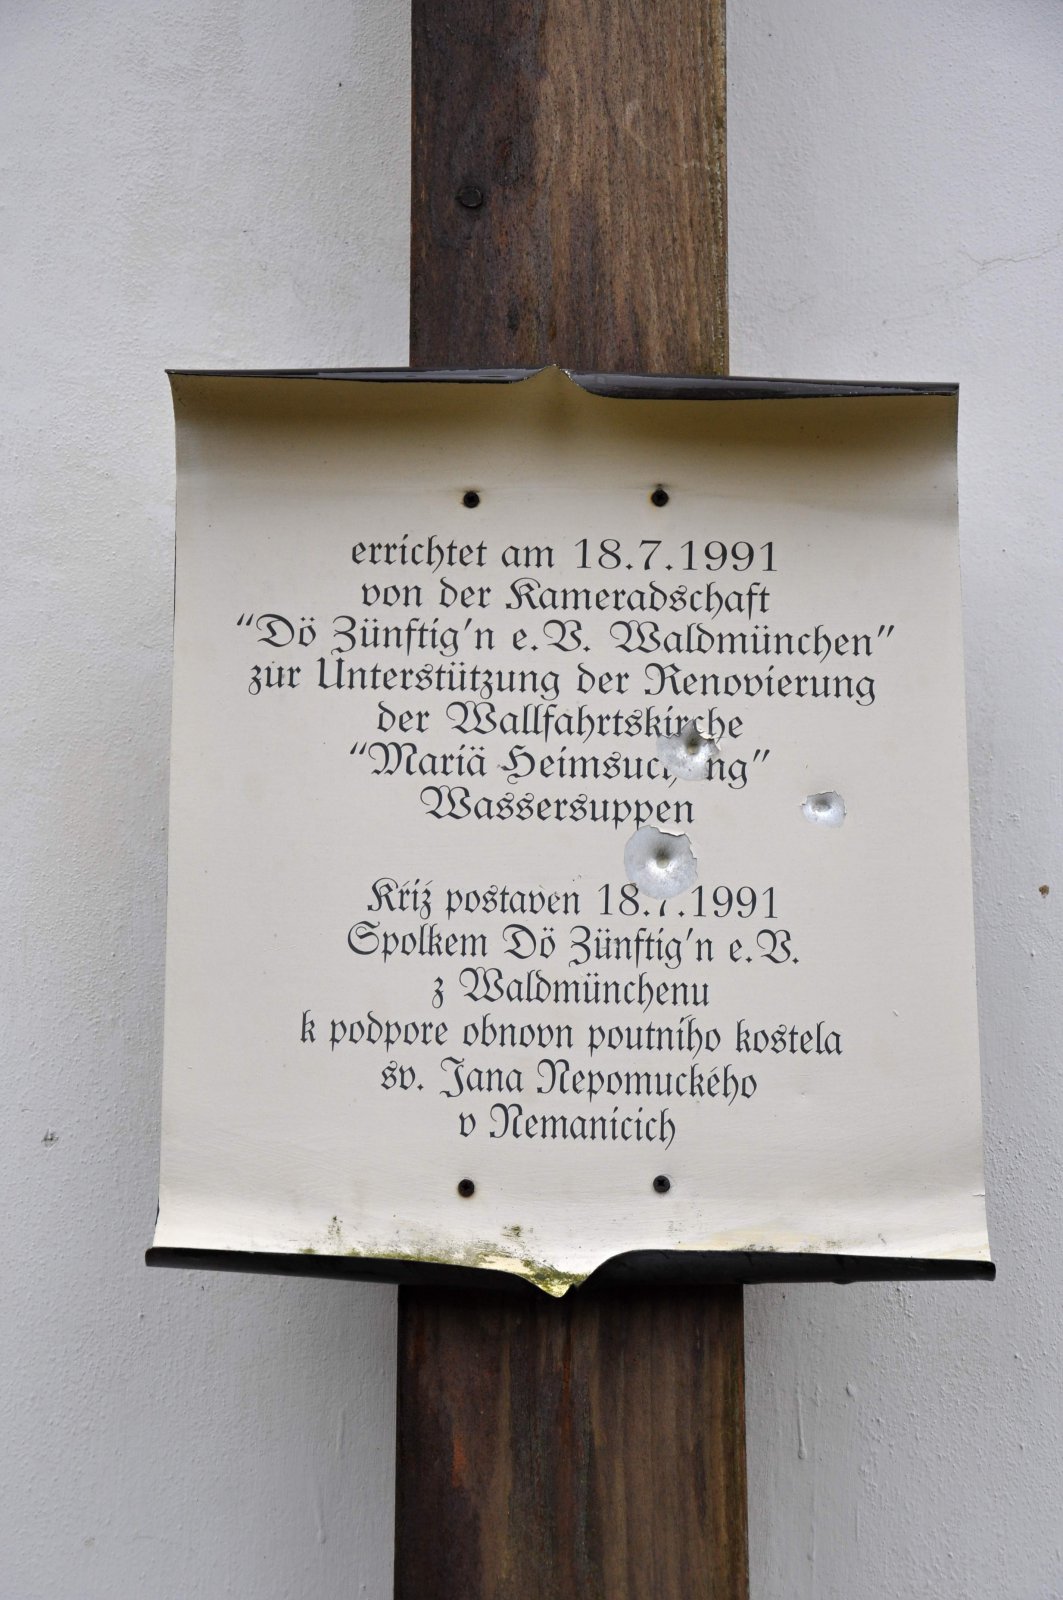 errichtet am 18.7.1991
von der Kameradschaft
"Dö Zünftig'n e.V. Waldmünchen"
zur Unterstützung der Renovierung
der Wallfahrtskirche
"Mariä Heimsuchung"
Wassersuppen
Kříž postaven 18.7.1991
Spolkem Dö Zünftig'n e.V.
z Waldmünchenu
k podpore obnovn poutního kostela
sv. Jana Nepomuckého
v Nemanicich